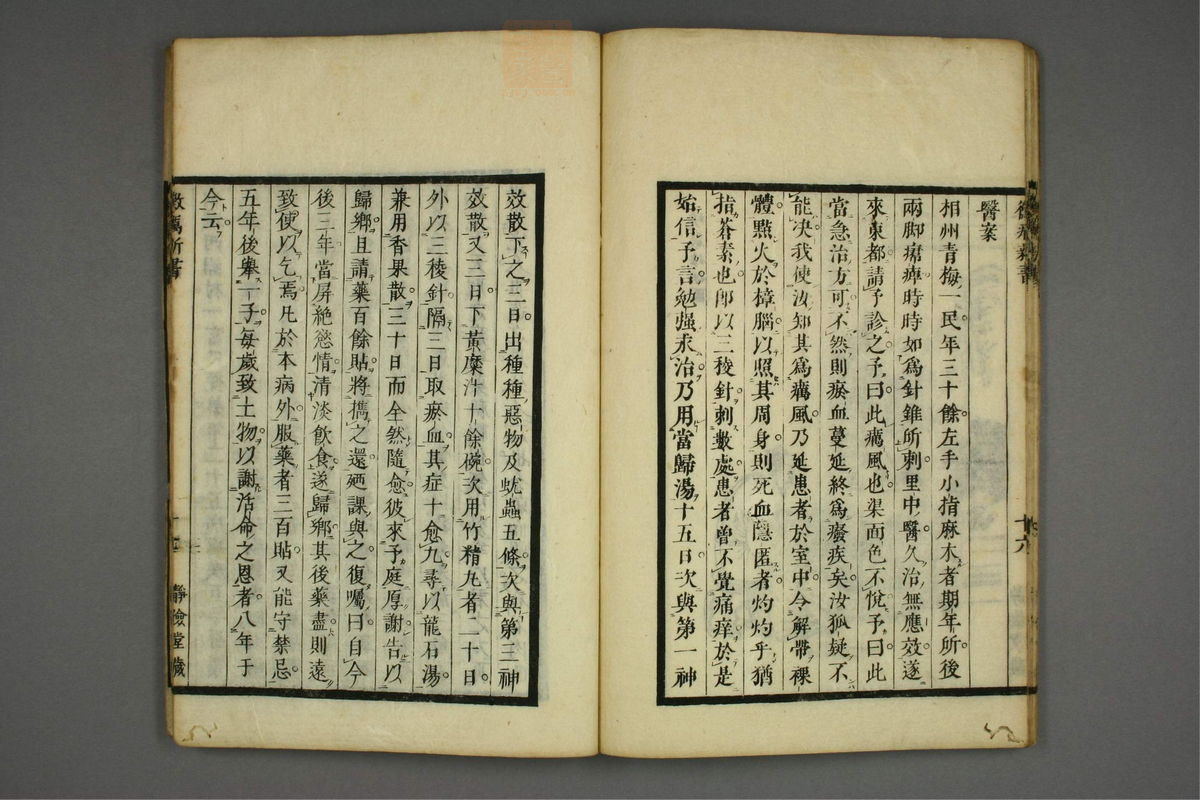 醫案
相州青梅一民年三十餘左手小指麻木者期年所後
兩脚痿痺時時如爲針錐所刺里中醫久治無應效遂
來東都請予診之予曰此癘風也渠面色不悅予曰此
當急治方可不然則瘀血蔓延終爲癈疾矣汝狐疑不
能決我使汝知其爲癘風乃延患者於室中令解帶裸
體點火於樟腦以照其周身則死血隱匿者灼灼乎猶
指蒼素也即以三稜針刺數處患者曾不覺痛痒於是
始信予言勉强求治乃用當歸湯十五日次與第一神
效散下之三日出種種惡物及蚘蟲五條次與第三神
效散又三日下黃糜汁十餘碗次用竹精丸者二十日
外以三稜針隔三日取瘀血其症十愈九尋以龍石湯
兼用香果散三十日而全然隨愈彼來予庭厚謝告以
歸鄉且請藥百餘貼將携之還廼課與之復囑曰自今
後三年當屏絕慾情清淡飮食遂歸鄉其後藥盡則遠
致使以乞焉凡於本病外服藥者三百貼又能守禁忌
五年後舉一子每歲致土物以謝活命之恩者八年于
今云
十六
靜儉堂藏